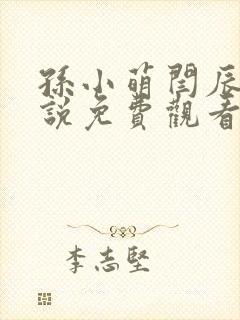 孫小萌閆辰
說免費觀看
李志堅